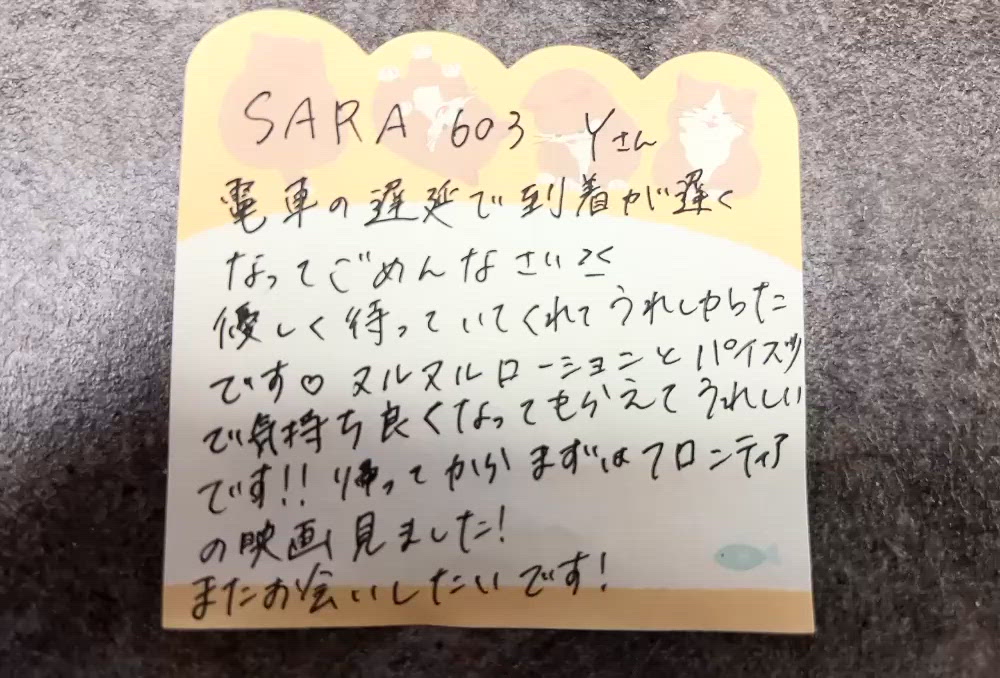 SARA 603 Yさん
電車の遅延で到着が遅く
なってごめんなさい><
優しく待っていてくれてうれしかった
です♡ヌルヌルローションとパイズリ
で気持ち良くなってもらえてうれしい
です!!帰ってからまずはフロンティア
の映画見ました!
またお会いしたいです!